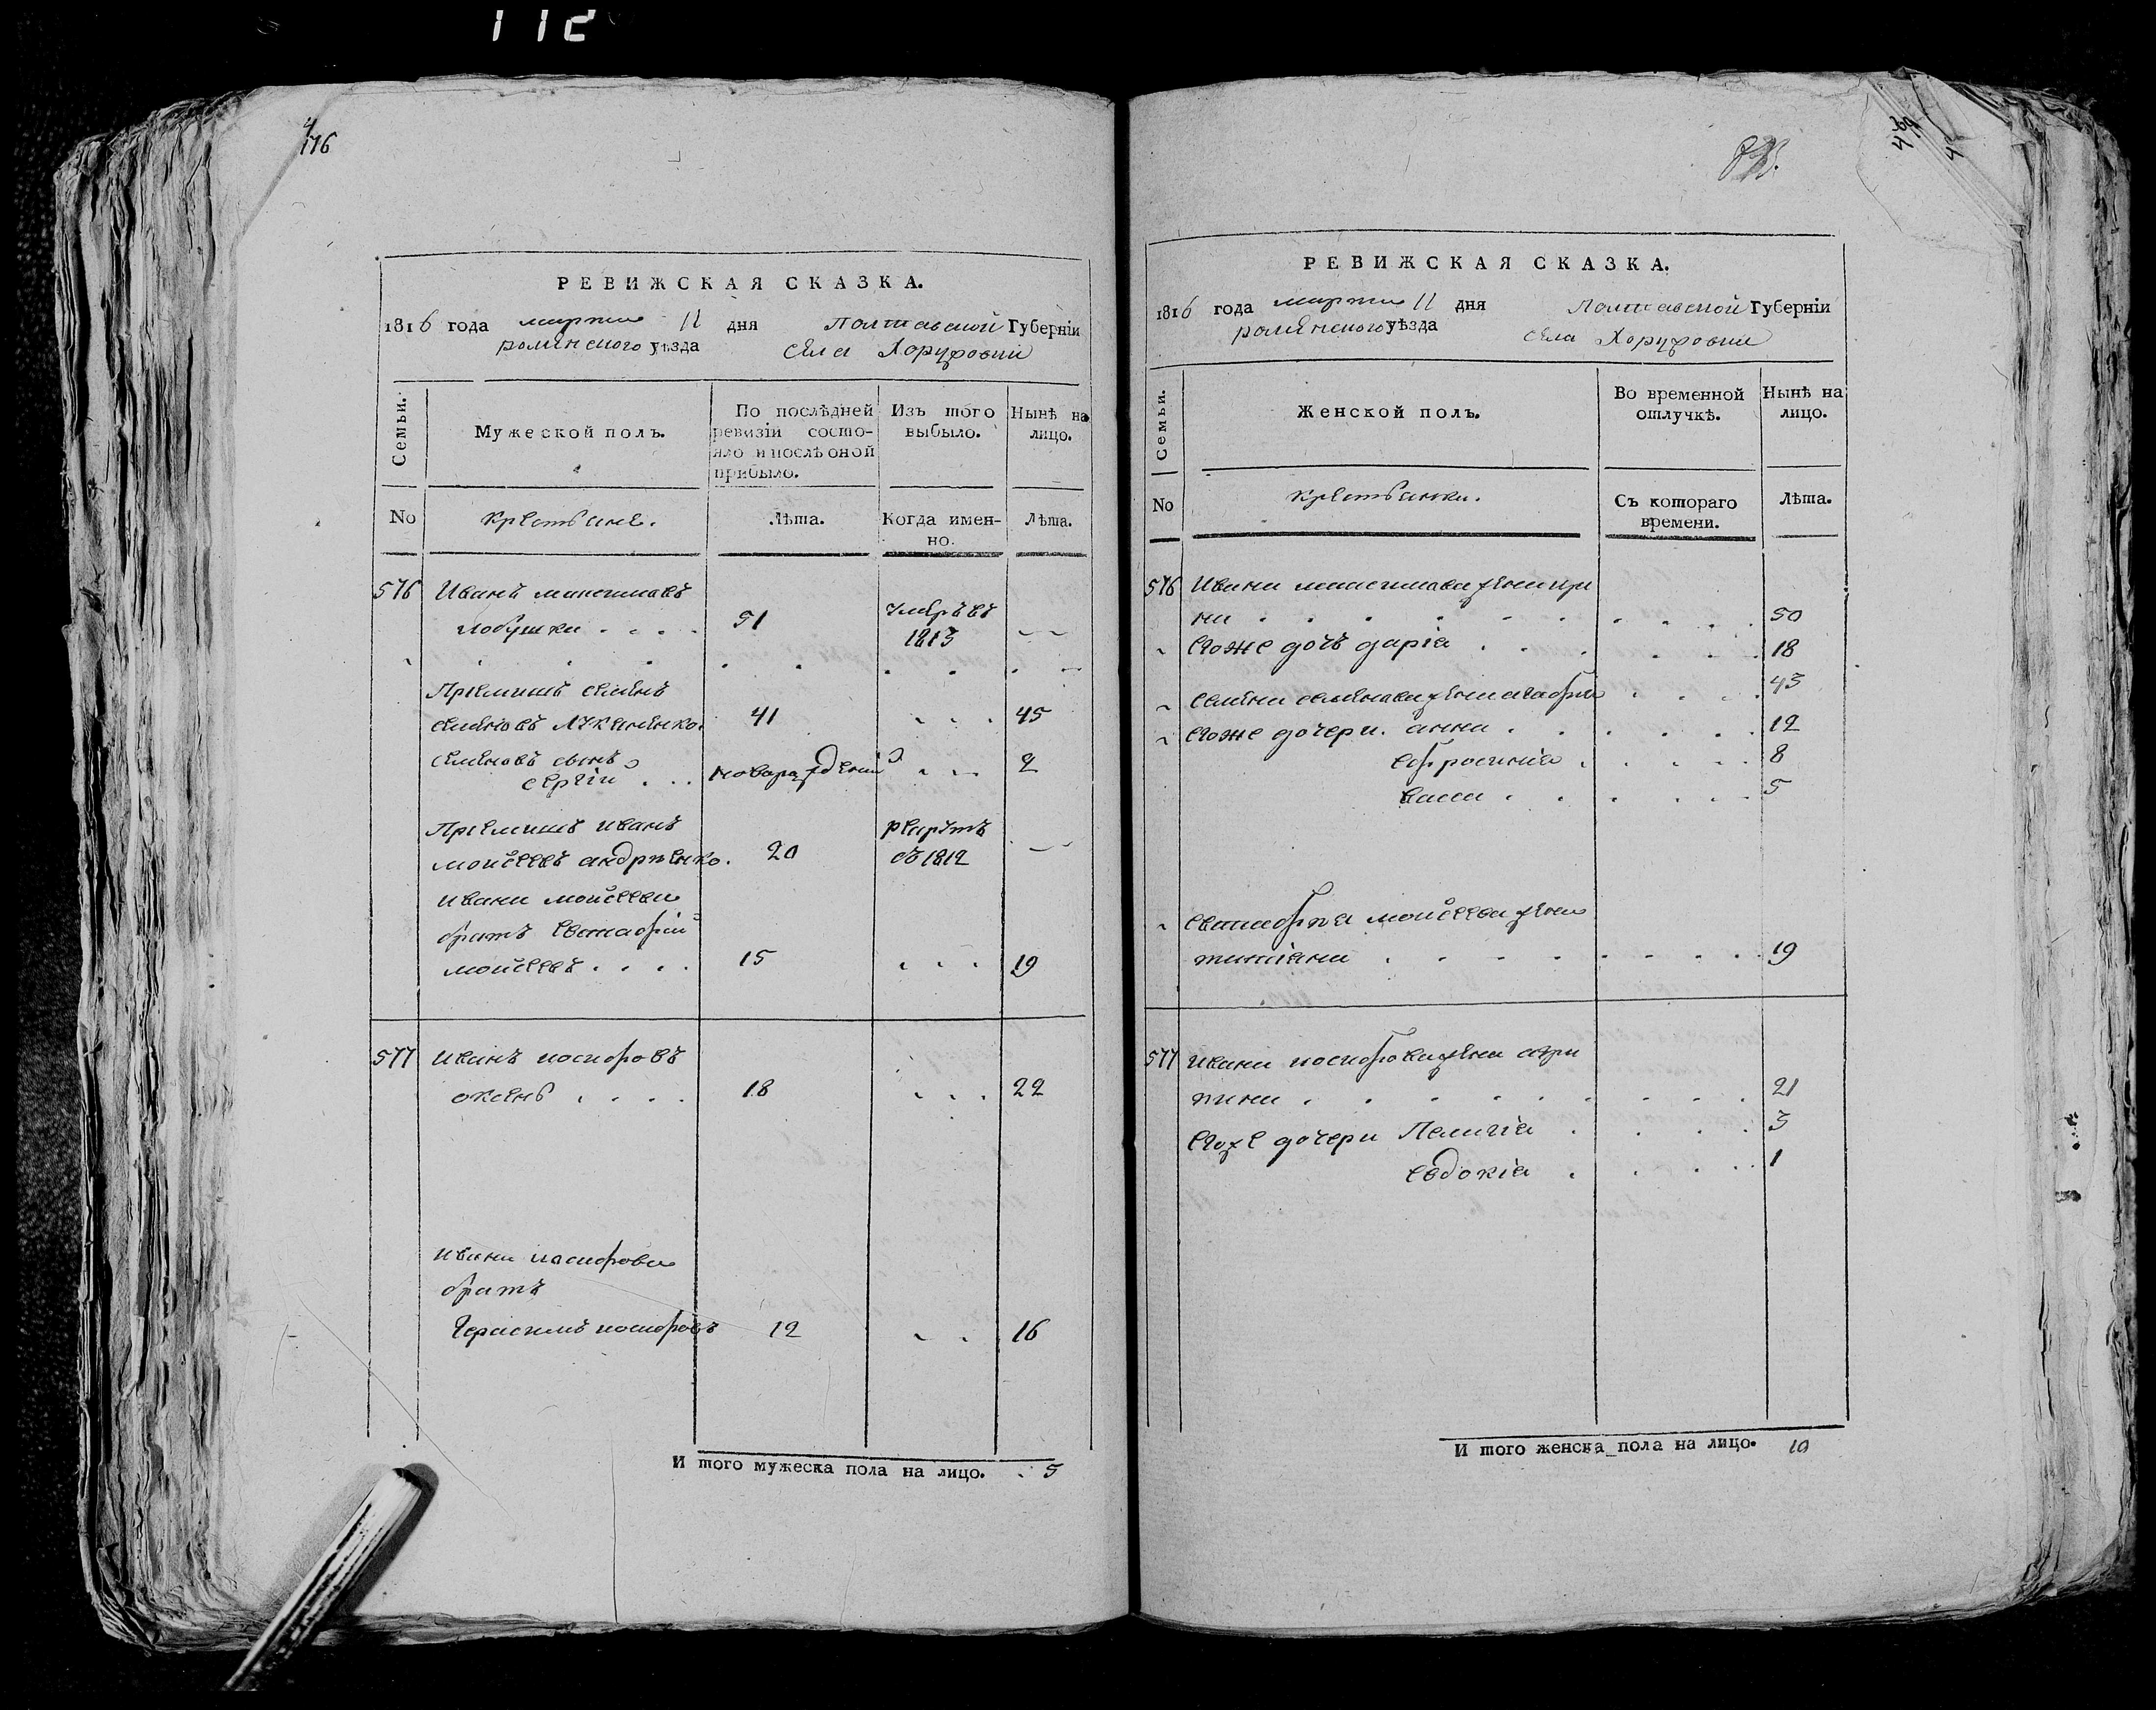 112
476
РЕВИЖСКАЯ СКАЗКА.
1816 года марта 11 дня Полтавской Губерніи
роменского уѣзда села Хоружовки
Семьи.
Мужеской полъ.
По послѣдней ревизіи состояло и послѣ оной прибыло.
Изъ того выбыло.
Нынѣ на лицо.
No
Крестьяне.
Лѣта.
Когда именно.
Лѣта.
576 Иванъ максимовъ
51 умеръ въ 1813
Приемишъ семенъ
семеновъ Лукаменко. 41 45
семеновъ сынъ
сергій новорожденій 2
Приемишъ иванъ рекрутъ
моисеевъ андриенко. 20 въ 1812
ивана моисеева
братъ Евстафій
моисеевъ 15 19
577 иванъ иосифовъ
18 22
ивана иосифова
братъ
Герасимъ иосифовъ 12 16
И того мужеска пола на лицо. 5
РЕВИЖСКАЯ СКАЗКА.
1816 года марта 11 дня Полтавской Губерніи
роменского уѣзда села Хоружовки
Семьи.
Женской полъ.
Во временной отлучкѣ.
Нынѣ на лицо.
No
Крестьянки.
Съ котораго времени.
Лѣта.
576 Ивана максимова жена ири
на 50
Егоже дочь дарія 18
семена семенова жена агафия 43
Егоже дочери. анна 12
Ефросинія 8
васса 5
Евстафия моисеева жена
татіана 19
577 ивана иосифова жена агри
пина 21
Егоже дочери Пелагія 3
Евдокія 1
И того женска пола на лицо. 10